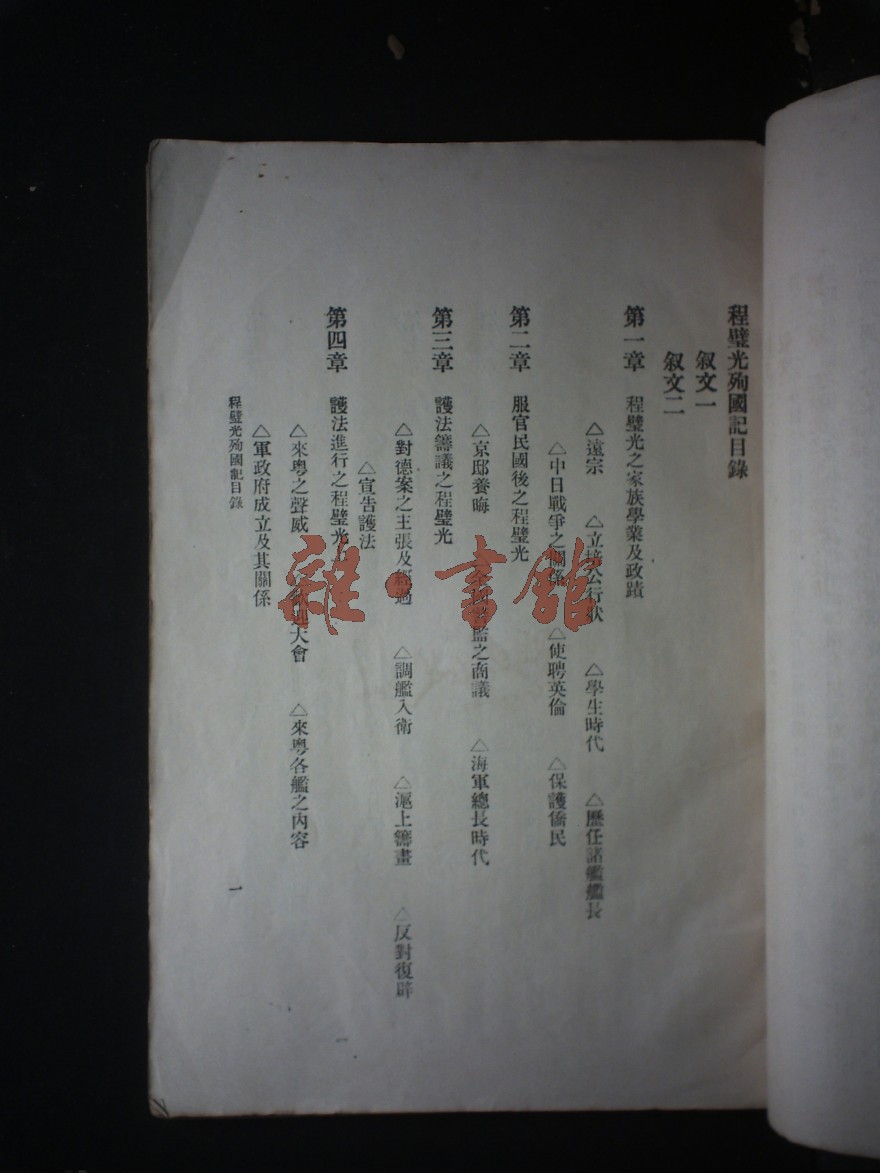 程璧光殉國記目錄
叙文一
叙文二
第一章 程璧光之家族學業及政蹟
△遠宗 △立 公行狀 △學生時代 △歷任諸艦艦長
△中日戰爭之關係 △使聘英倫 △保護僑民
第二章 服官民國後之程璧光
△京邸養晦 之商議 △海軍總長時代
第三章 護法籌議之程璧光
△對德案之主張及經過 △調艦入衛 △滬上籌畫 △反對復辟
△宣告護法
第四章 護法進行之程璧光
△來粵之聲威 歡迎大會 △來粵各艦之內容
△軍政府成立及其關係
程璧光殉國記目錄
一
雜·書館